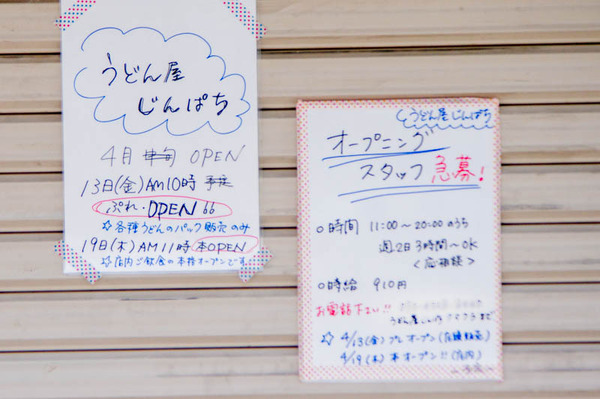 うどん屋
じんぱち
4月 中旬 OPEN
13日(金)AM10時 予定
ぷれ・OPEN
☆各種うどんのパック販売のみ
19日(木)AM11時 本OPEN
☆店内ご飲食の本格オープンです
うどん屋じんぱち
オープニング
スタッフ急募!
○時間 11:00~20:00のうち
週2日3時間~OK
<応相談>
○時給 910円
お電話下さい!!
うどん屋じんぱち
☆ 4/13(金)プレオープン(店頭販売)
4/19(木)本オープン!!(店内)